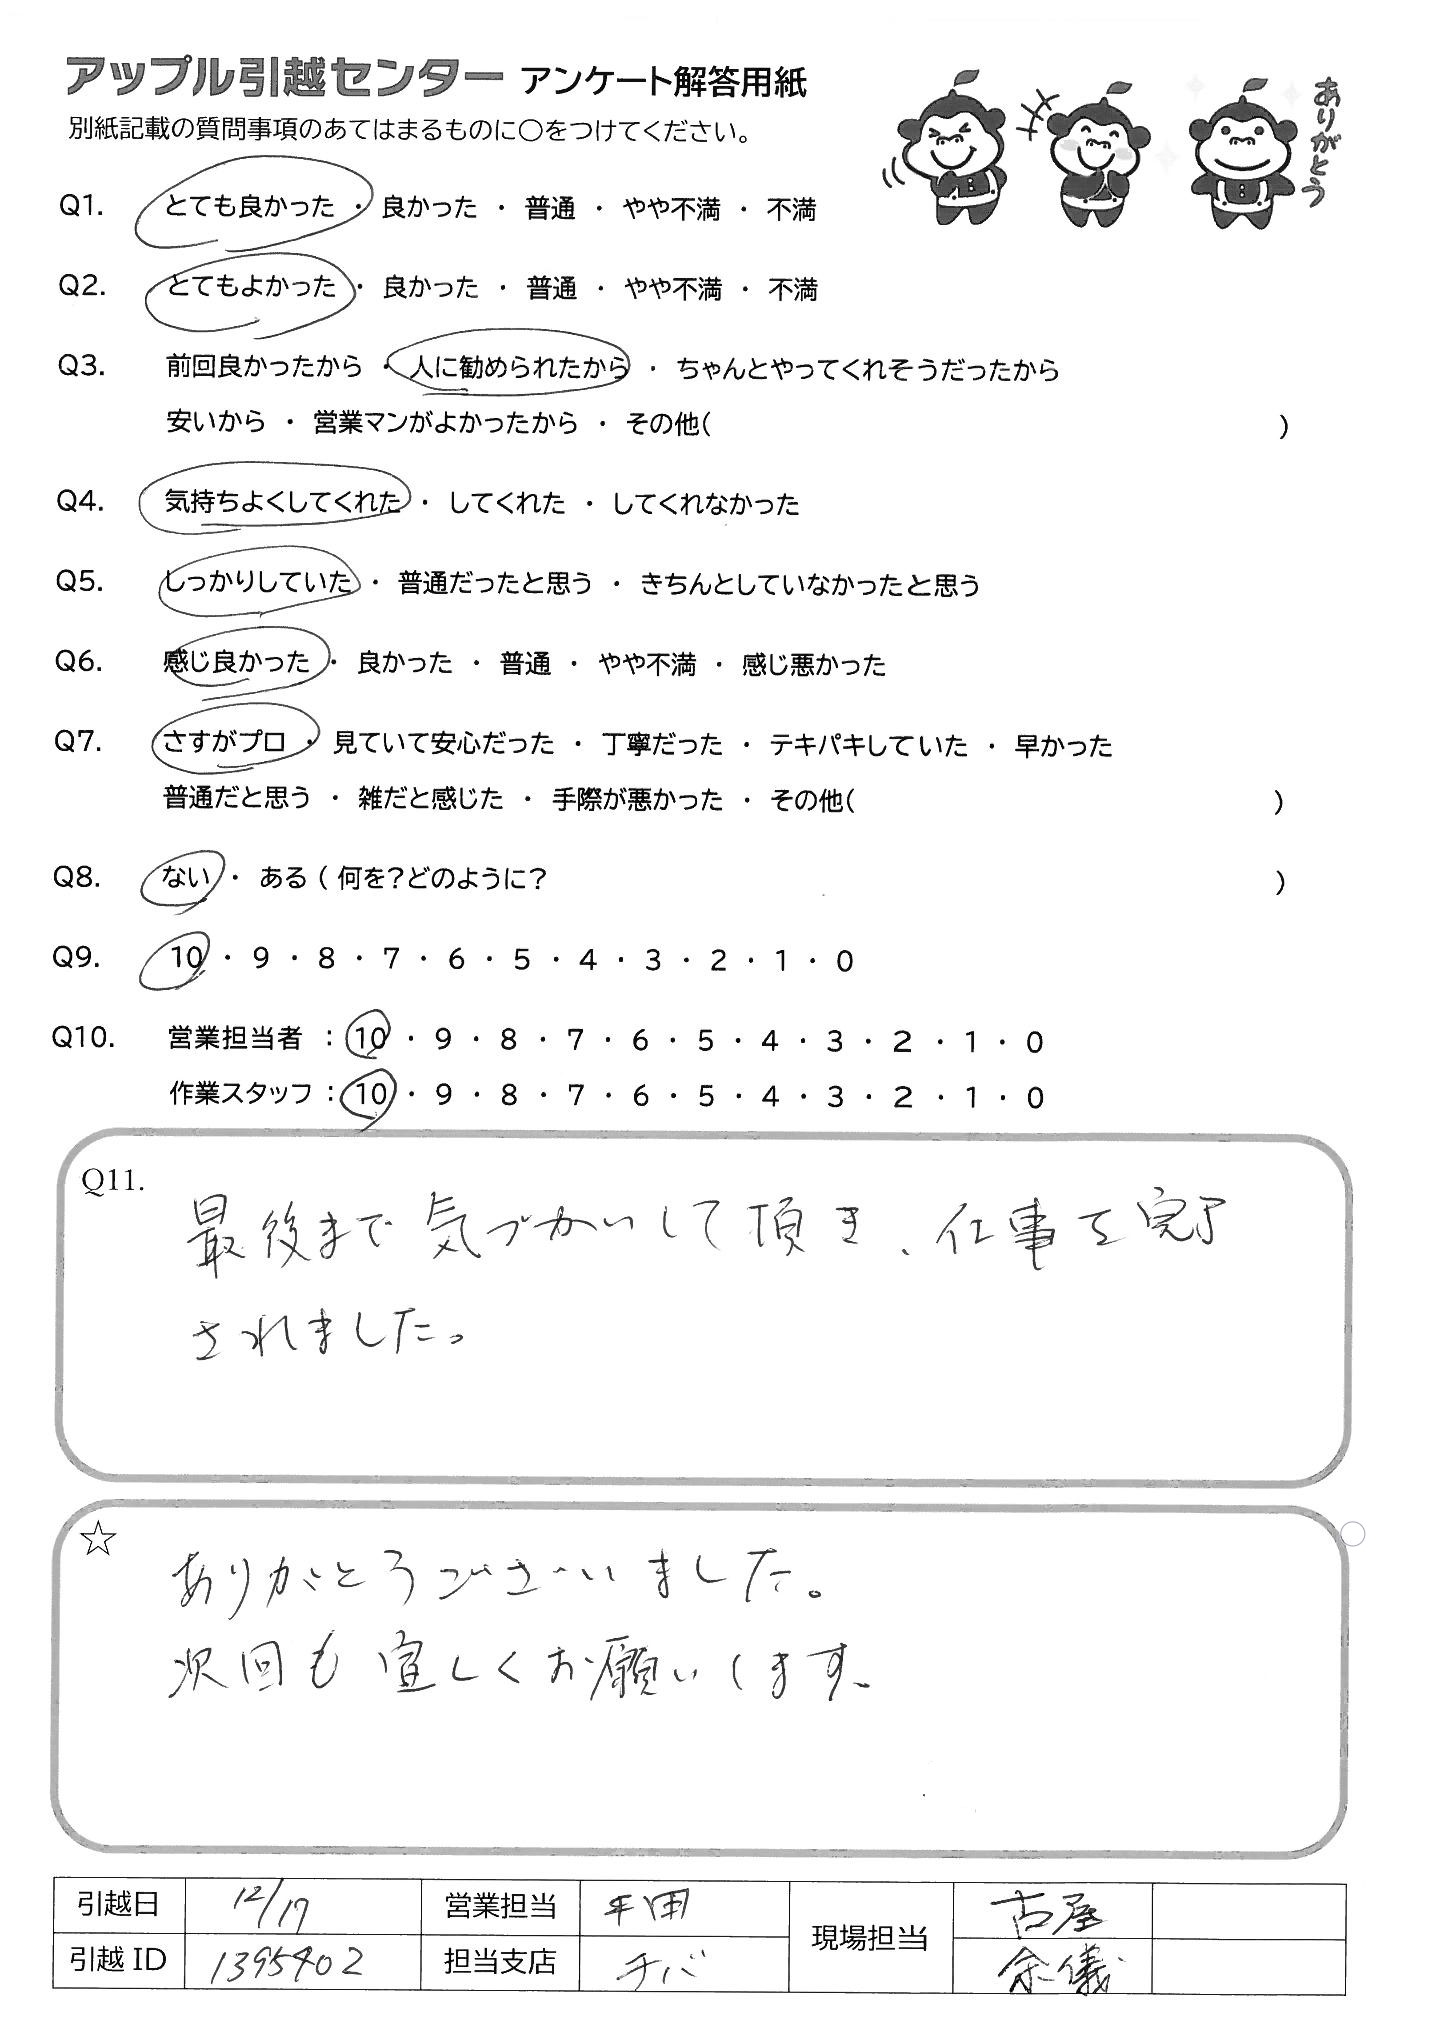 アップル引越センター アンケート解答用紙
別紙記載の質問事項のあてはまるものに○をつけてください。
ありがとう
Q1. とても良かった ・ 良かった ・ 普通 ・ やや不満 ・ 不満
Q2. とてもよかった ・ 良かった ・ 普通 ・ やや不満 ・ 不満
Q3. 前回良かったから ・ 人に勧められたから ・ ちゃんとやってくれそうだったから
安いから ・ 営業マンがよかったから ・ その他( )
Q4. 気持ちよくしてくれた ・ してくれた ・ してくれなかった
Q5. しっかりしていた ・ 普通だったと思う ・ きちんとしていなかったと思う
Q6. 感じ良かった ・ 良かった ・ 普通 ・ やや不満 ・ 感じ悪かった
Q7. さすがプロ ・ 見ていて安心だった ・ 丁寧だった ・ テキパキしていた ・ 早かった
普通だと思う ・ 雑だと感じた ・ 手際が悪かった ・ その他( )
Q8. ない ・ ある ( 何を?どのように? )
Q9. 10 ・ 9 ・ 8 ・ 7 ・ 6 ・ 5 ・ 4 ・ 3 ・ 2 ・ 1 ・ 0
Q10. 営業担当者 : 10 ・ 9 ・ 8 ・ 7 ・ 6 ・ 5 ・ 4 ・ 3 ・ 2 ・ 1 ・ 0
作業スタッフ : 10 ・ 9 ・ 8 ・ 7 ・ 6 ・ 5 ・ 4 ・ 3 ・ 2 ・ 1 ・ 0
Q11.
最後まで気づかいして頂き、仕事を完了
されました。
☆
ありがとうございました。
次回も宜しくお願いします。
引越日 12/17 営業担当 平田 現場担当 古屋
引越ID 1395402 担当支店 チバ 余儀